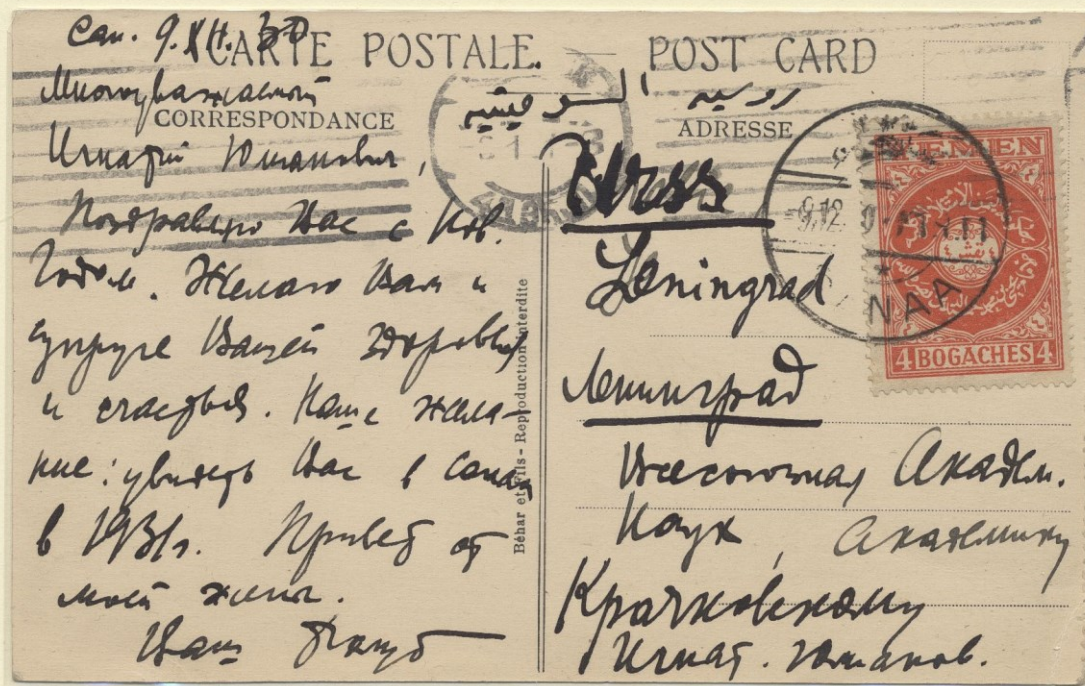 Сан. 9.XII.30
CARTE POSTALE. POST CARD
CORRESPONDANCE
ADRESSE
Многоуважаемый
Игнатий Юлианович,
Поздравляю Вас с Нов.
Годом. Желаю Вам и
супруге Вашей здоровья
и счастья. Наше жела-
ние: увидеть Вас в Санаа
в 1931г. Привет от
моей жены.
Ваш
Behar et Fils - Reproduction interdite
روسيه السوفيتيه
URSS
Leningrad
Ленинград
Всесоюзная Академ.
Наук, Академику
Крачковскому
Игнат. Юлианов.
YEMEN
4 BOGACHES 4
9.12
SANAA